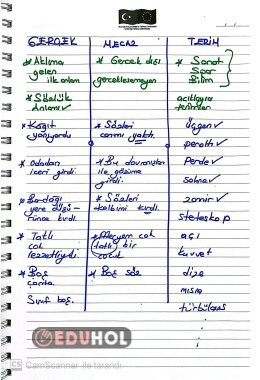 GERÇEK
MECAZ
TERİM
* Aklıma gelen ilk anlam
* Gerçek dışı gerçekleşmeyen
* Sanat
Spor
Bilim
* Sözlük Anlamı ✓
açıklayıa
* Kağıt yanıyordu
* Sözleri canımı yaktı.
üçgen ✓
perde ✓
* Odadan içeri girdi.
* Bu davranışları ile gözüme girdi.
sahne ✓
* Bardağı yere düşü-
rünce kırdı.
* Sözleri kalbimi kırdı.
zamir ✓
steteskop
* Tatlı çok lezzetliydi.
* Meryem çok tatlı bir çocuk
açı
kuvvet
* Boş çanta
* Boş söz
dize
Sınıf boş.
mısra
EDUHOL
CS CamScanner ile tarandı